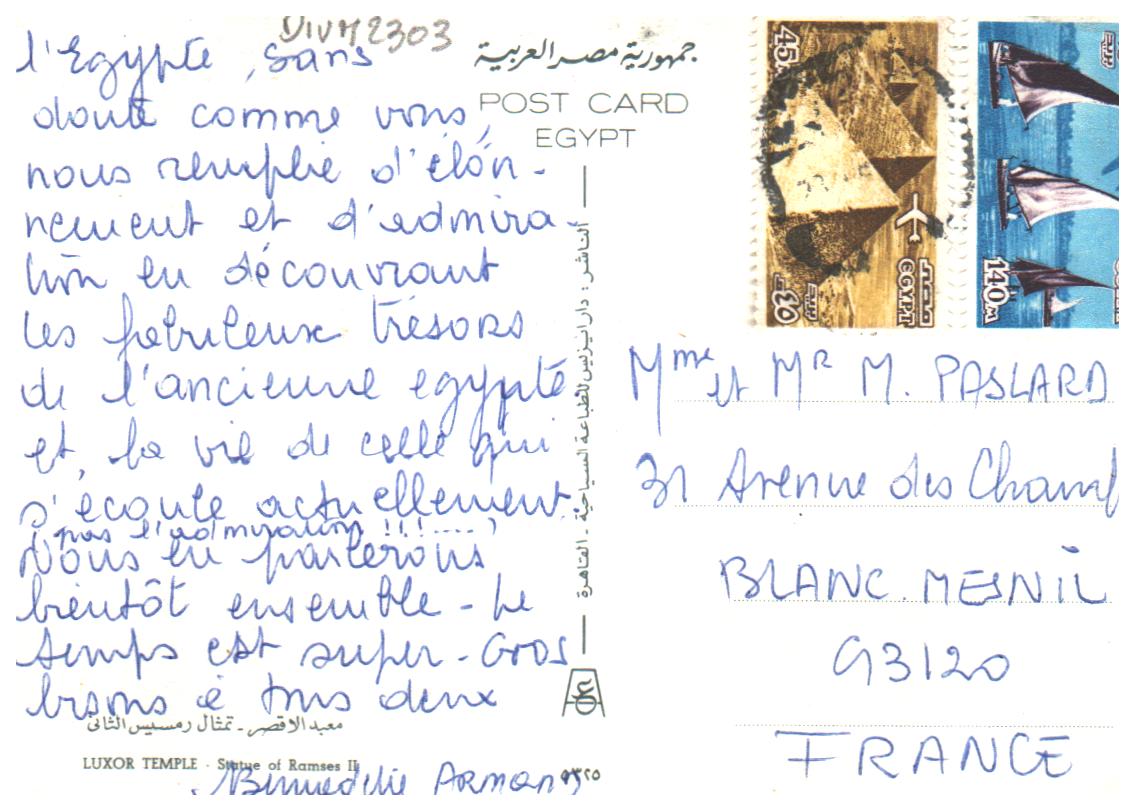 DIVM2303
l'Egypte, sans
doute comme vous,
nous remplie d'éton-
nement et d'admira-
tion en découvrant
les fabuleux trésors
de l'ancienne egypte
et, la vie de celle qui
s'écoule actuellement
(pas l'admiration !!!....)
Nous en parlerons
bientôt ensemble - Le
temps est super - Gros
bisous à tous deux
معبد الاقصر - تمثال رمسيس الثانى
LUXOR TEMPLE - Statue of Ramses II
Bénédicte Armand
جمهورية مصر العربية
POST CARD
EGYPT
الناشر : دار ايزيس للطباعة السياحية - القاهرة
٥٣٢٥
45 M
مصر
EGYPT
٤٥
140 M
Mme et MR M. PASLARD
31 Avenue des Champ
BLANC. MESNIL
93120
FRANCE